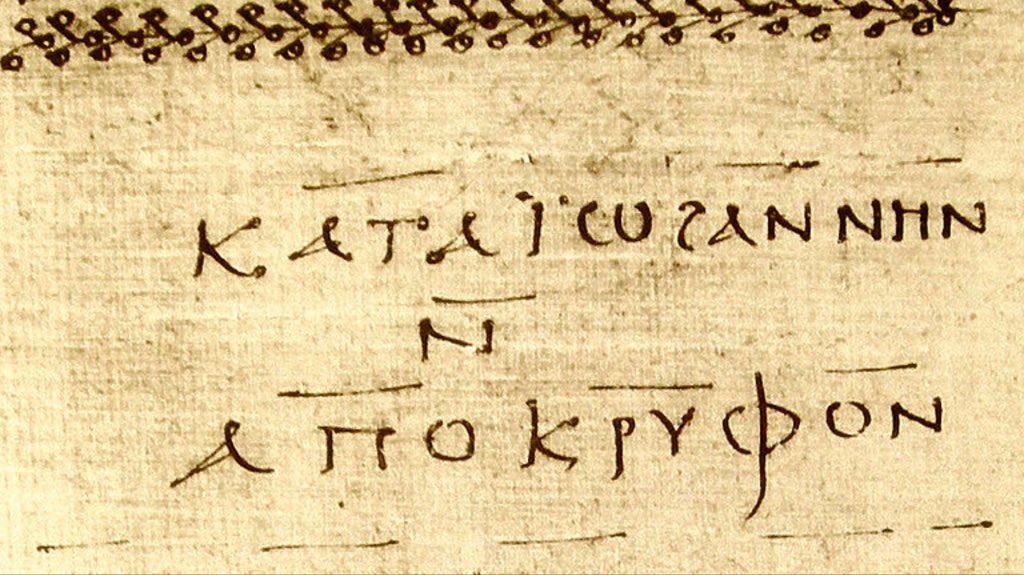 ⲕⲁⲧⲁ ⲓ̈ⲱϩⲁⲛⲛⲏⲛ
ⲛ̄
ⲁⲡⲟⲕⲣⲩⲫⲟⲛ